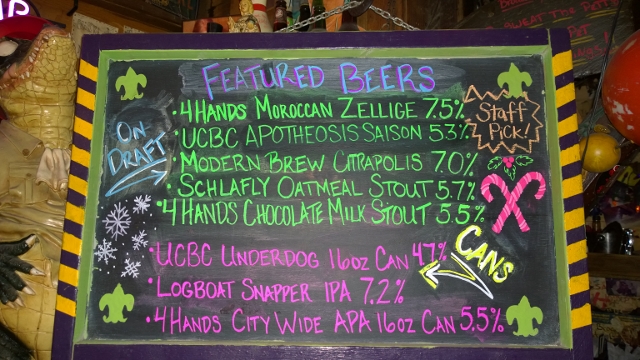 FEATURED BEERS
ON DRAFT
• 4 HANDS MOROCCAN ZELLIGE 7.5%
STAFF PICK!
• UCBC APOTHEOSIS SAISON 5.3%
• MODERN BREW CITRAPOLIS 7.0%
• SCHLAFLY OATMEAL STOUT 5.7%
• 4 HANDS CHOCOLATE MILK STOUT 5.5%
CANS
• UCBC UNDERDOG 16oz CAN 4.7%
• LOGBOAT SNAPPER IPA 7.2%
• 4 HANDS CITY WIDE APA 16oz CAN 5.5%